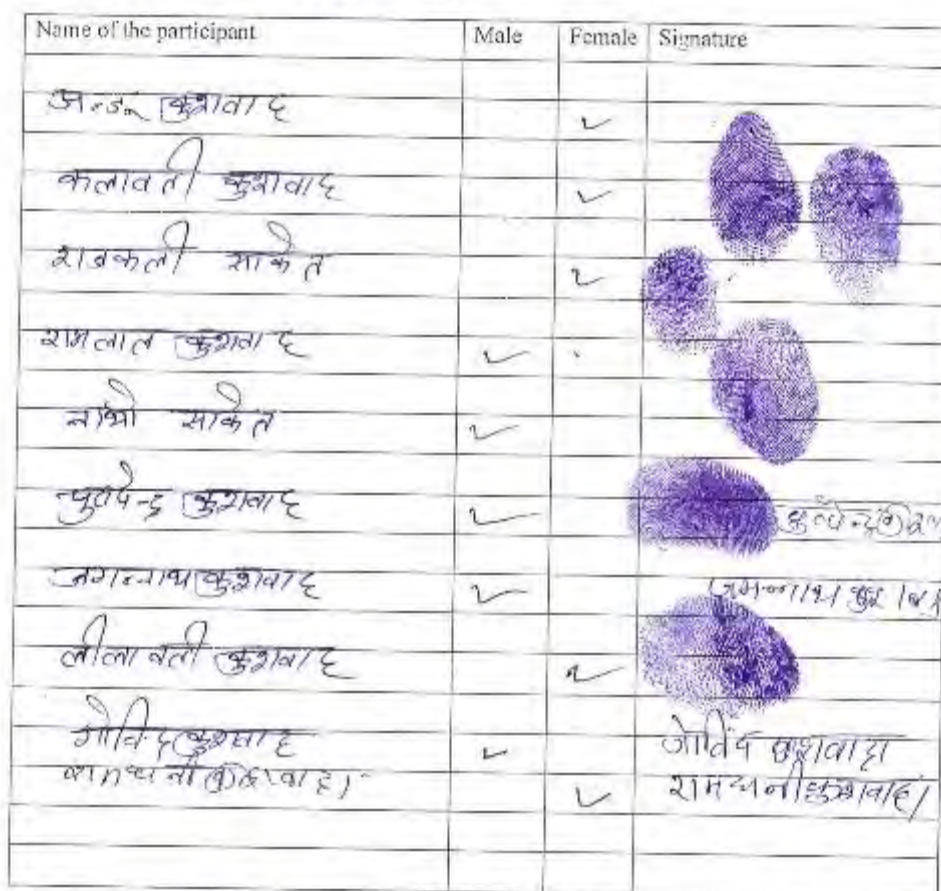 Name of the participant Male Female Signature
कुशवाह
कलावती कुशवाह
राजकली साकेत
रामलाल कुशवाह
साकेत
कुशवाह
जगन्नाथ कुशवाह जगन्नाथ
लीलावती कुशवाह
गोविन्द कुशवाह गोविंद कुशवाहा
रामधनी कुशवाहा रामधनी कुशवाहा